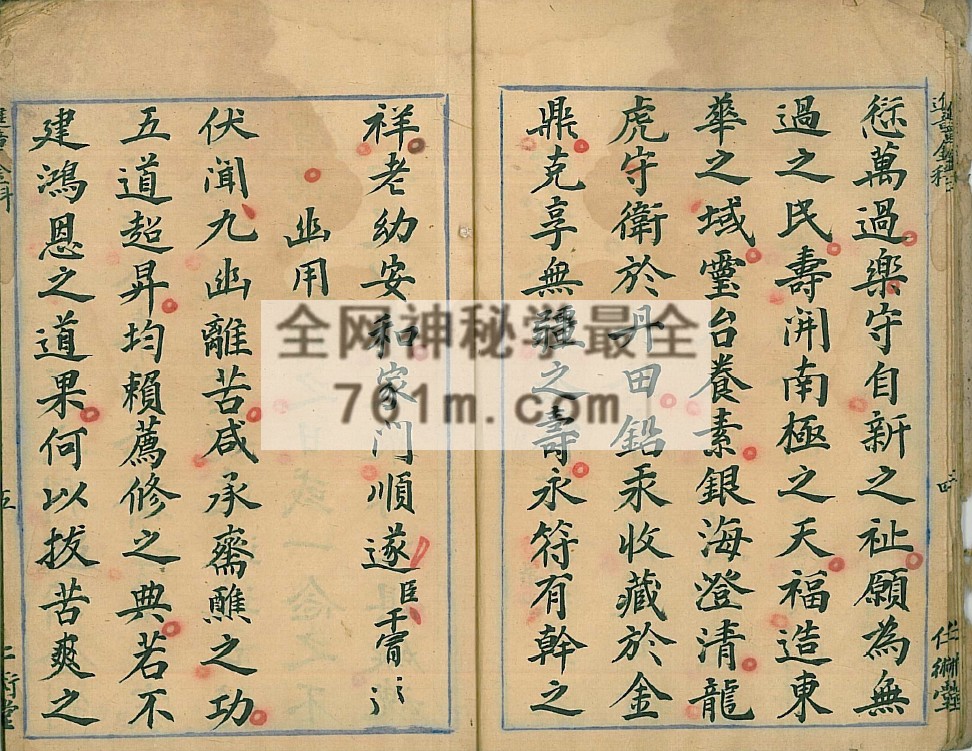 愆萬過樂守自新之祉願為無
過之民壽開南極之天福造東
華之域靈台養素銀海澄清龍
虎守衛於丹田鉛汞收藏於金
鼎克享無疆之壽永符有幹之
祥老幼安和家門順遂臣干冒
幽用
伏聞九幽離苦咸承齋醮之功
五道超昇均賴薦修之典若不
建鴻恩之道果何以拔苦爽之
全网神秘学最全
761m.com
四
五